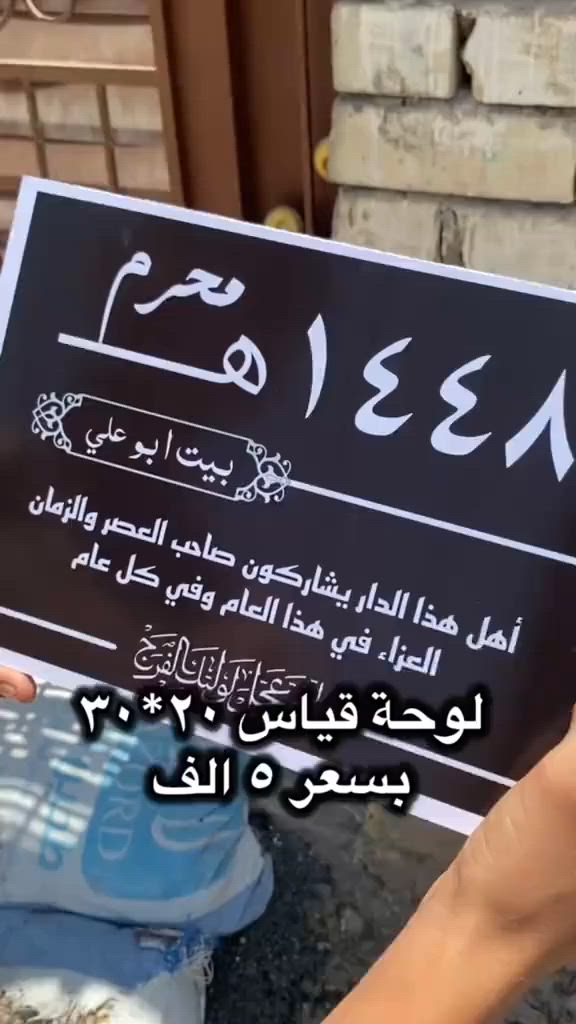 محرم
١٤٤٨هـ
بيت ابو علي
أهل هذا الدار يشاركون صاحب العصر والزمان
العزاء في هذا العام وفي كل عام
عجل لوليك الفرج
لوحة قياس ٢٠*٣٠
بسعر ٥ الف